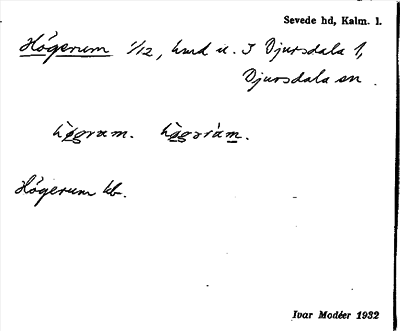 Sevede hd, Kalm. l.
Högerum 1/12, hmd u. 3 Djursdala 1,
Djursdala sn.
hø̀gram. hø̀gəràm.
Högerum kb.
Ivar Modéer 1932